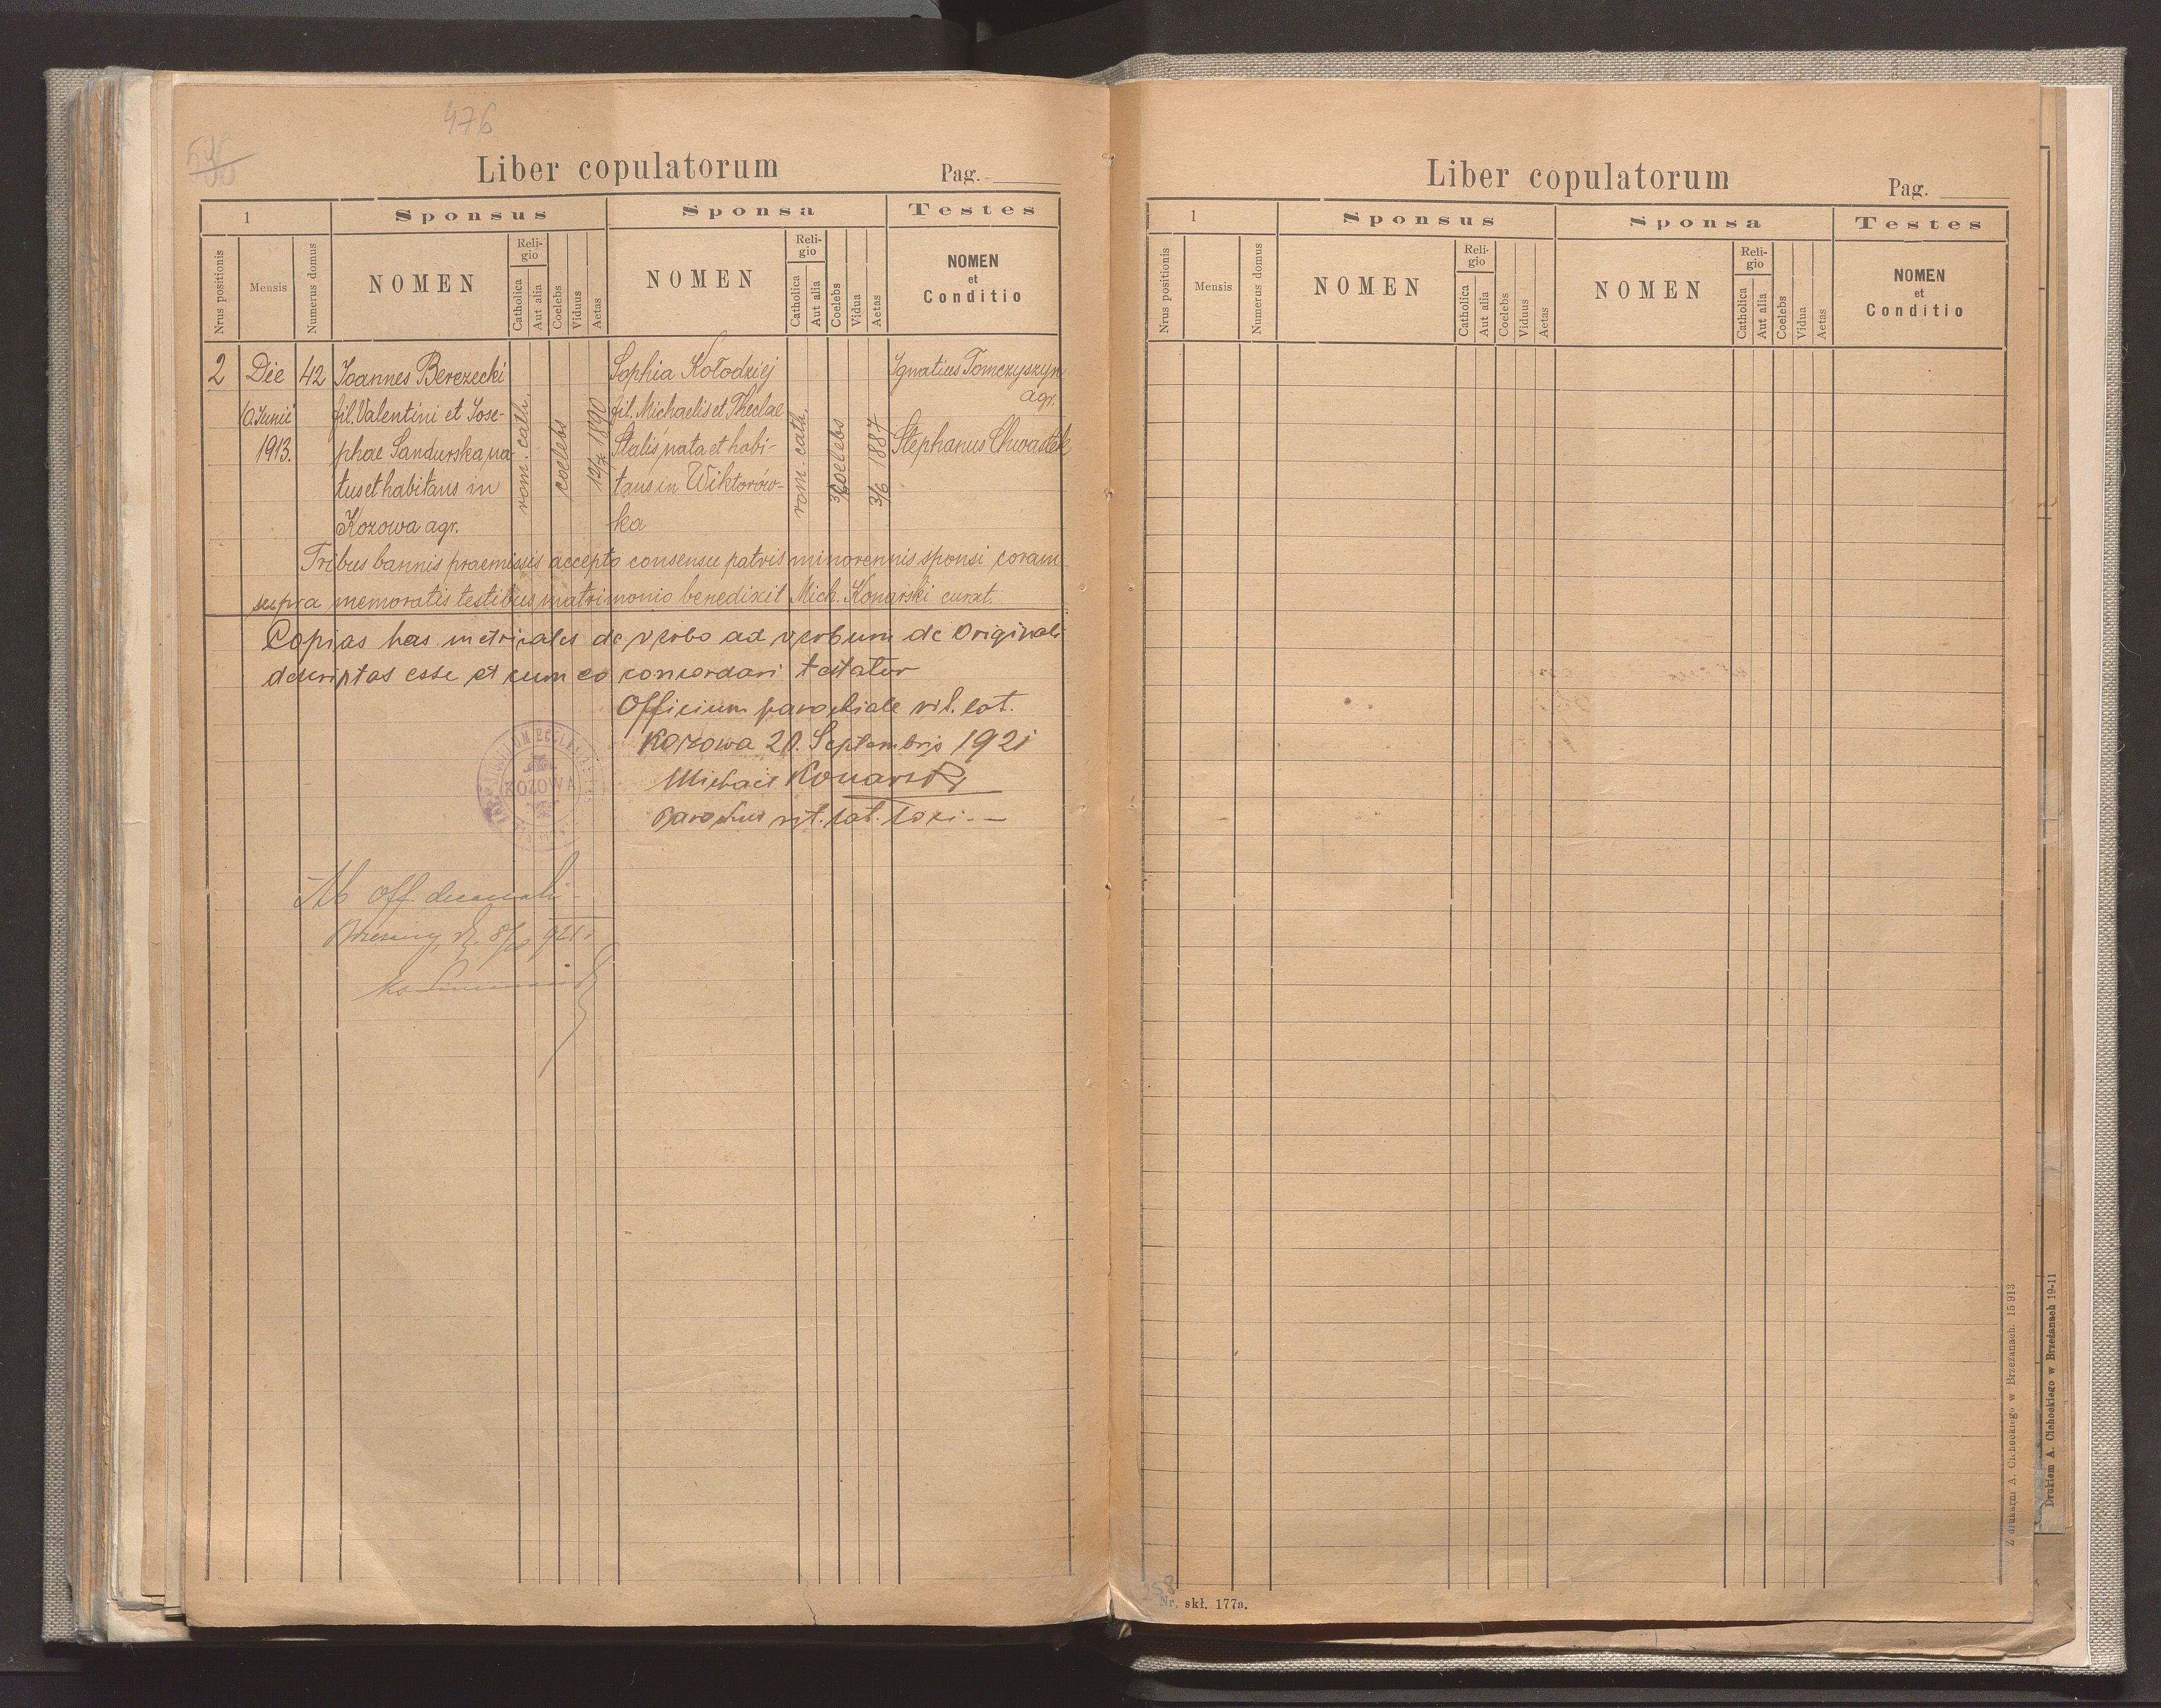 476
Liber copulatorum Pag.
1 Sponsus Sponsa Testes
Nrus positionis Mensis Numerus domus NOMEN Religio Catholica Aut alia Coelebs Viduus Aetas NOMEN Religio Catholica Aut alia Coelebs Vidua Aetas NOMEN et Conditio
2 Die 42 Joannes Berezecki Sophia Kołodziej Ignatius Tomczyszyn
10. Junii fil. Valentini et Jose- fil. Michaelis et Theclae agr.
1913. phae Sandurska, na- Stalis, nata et habi- Stephanus Chwastek
tus et habitans in tans in Wiktorów-
Kozowa agr. ka
rom. cath. coelebs 12/7 1890 rom. cath. coelebs 3/6 1887
Tribus bannis praemissis accepto consensu patris minorennis sponsi coram
supra memoratis testibus matrimonio benedixit Mich. Konarski curat.
Copias has metricales de verbo ad verbum de Originali
descriptas esse et cum eo concordari testatur
Officium parochiale rit. lat.
Kozowa 20. Septembris 1921
Michael Konarski
Parochus rit. lat. loci.
KOZOWA
Ab Off. decanali
8/10 921
Liber copulatorum Pag.
1 Sponsus Sponsa Testes
Nrus positionis Mensis Numerus domus NOMEN Religio Catholica Aut alia Coelebs Viduus Aetas NOMEN Religio Catholica Aut alia Coelebs Vidua Aetas NOMEN et Conditio
Z drukarni A. Cichockiego w Brzeżanach. 15 913
Drukiem A. Cichockiego w Brzeżanach 19-11
258
Nr. skł. 177a.